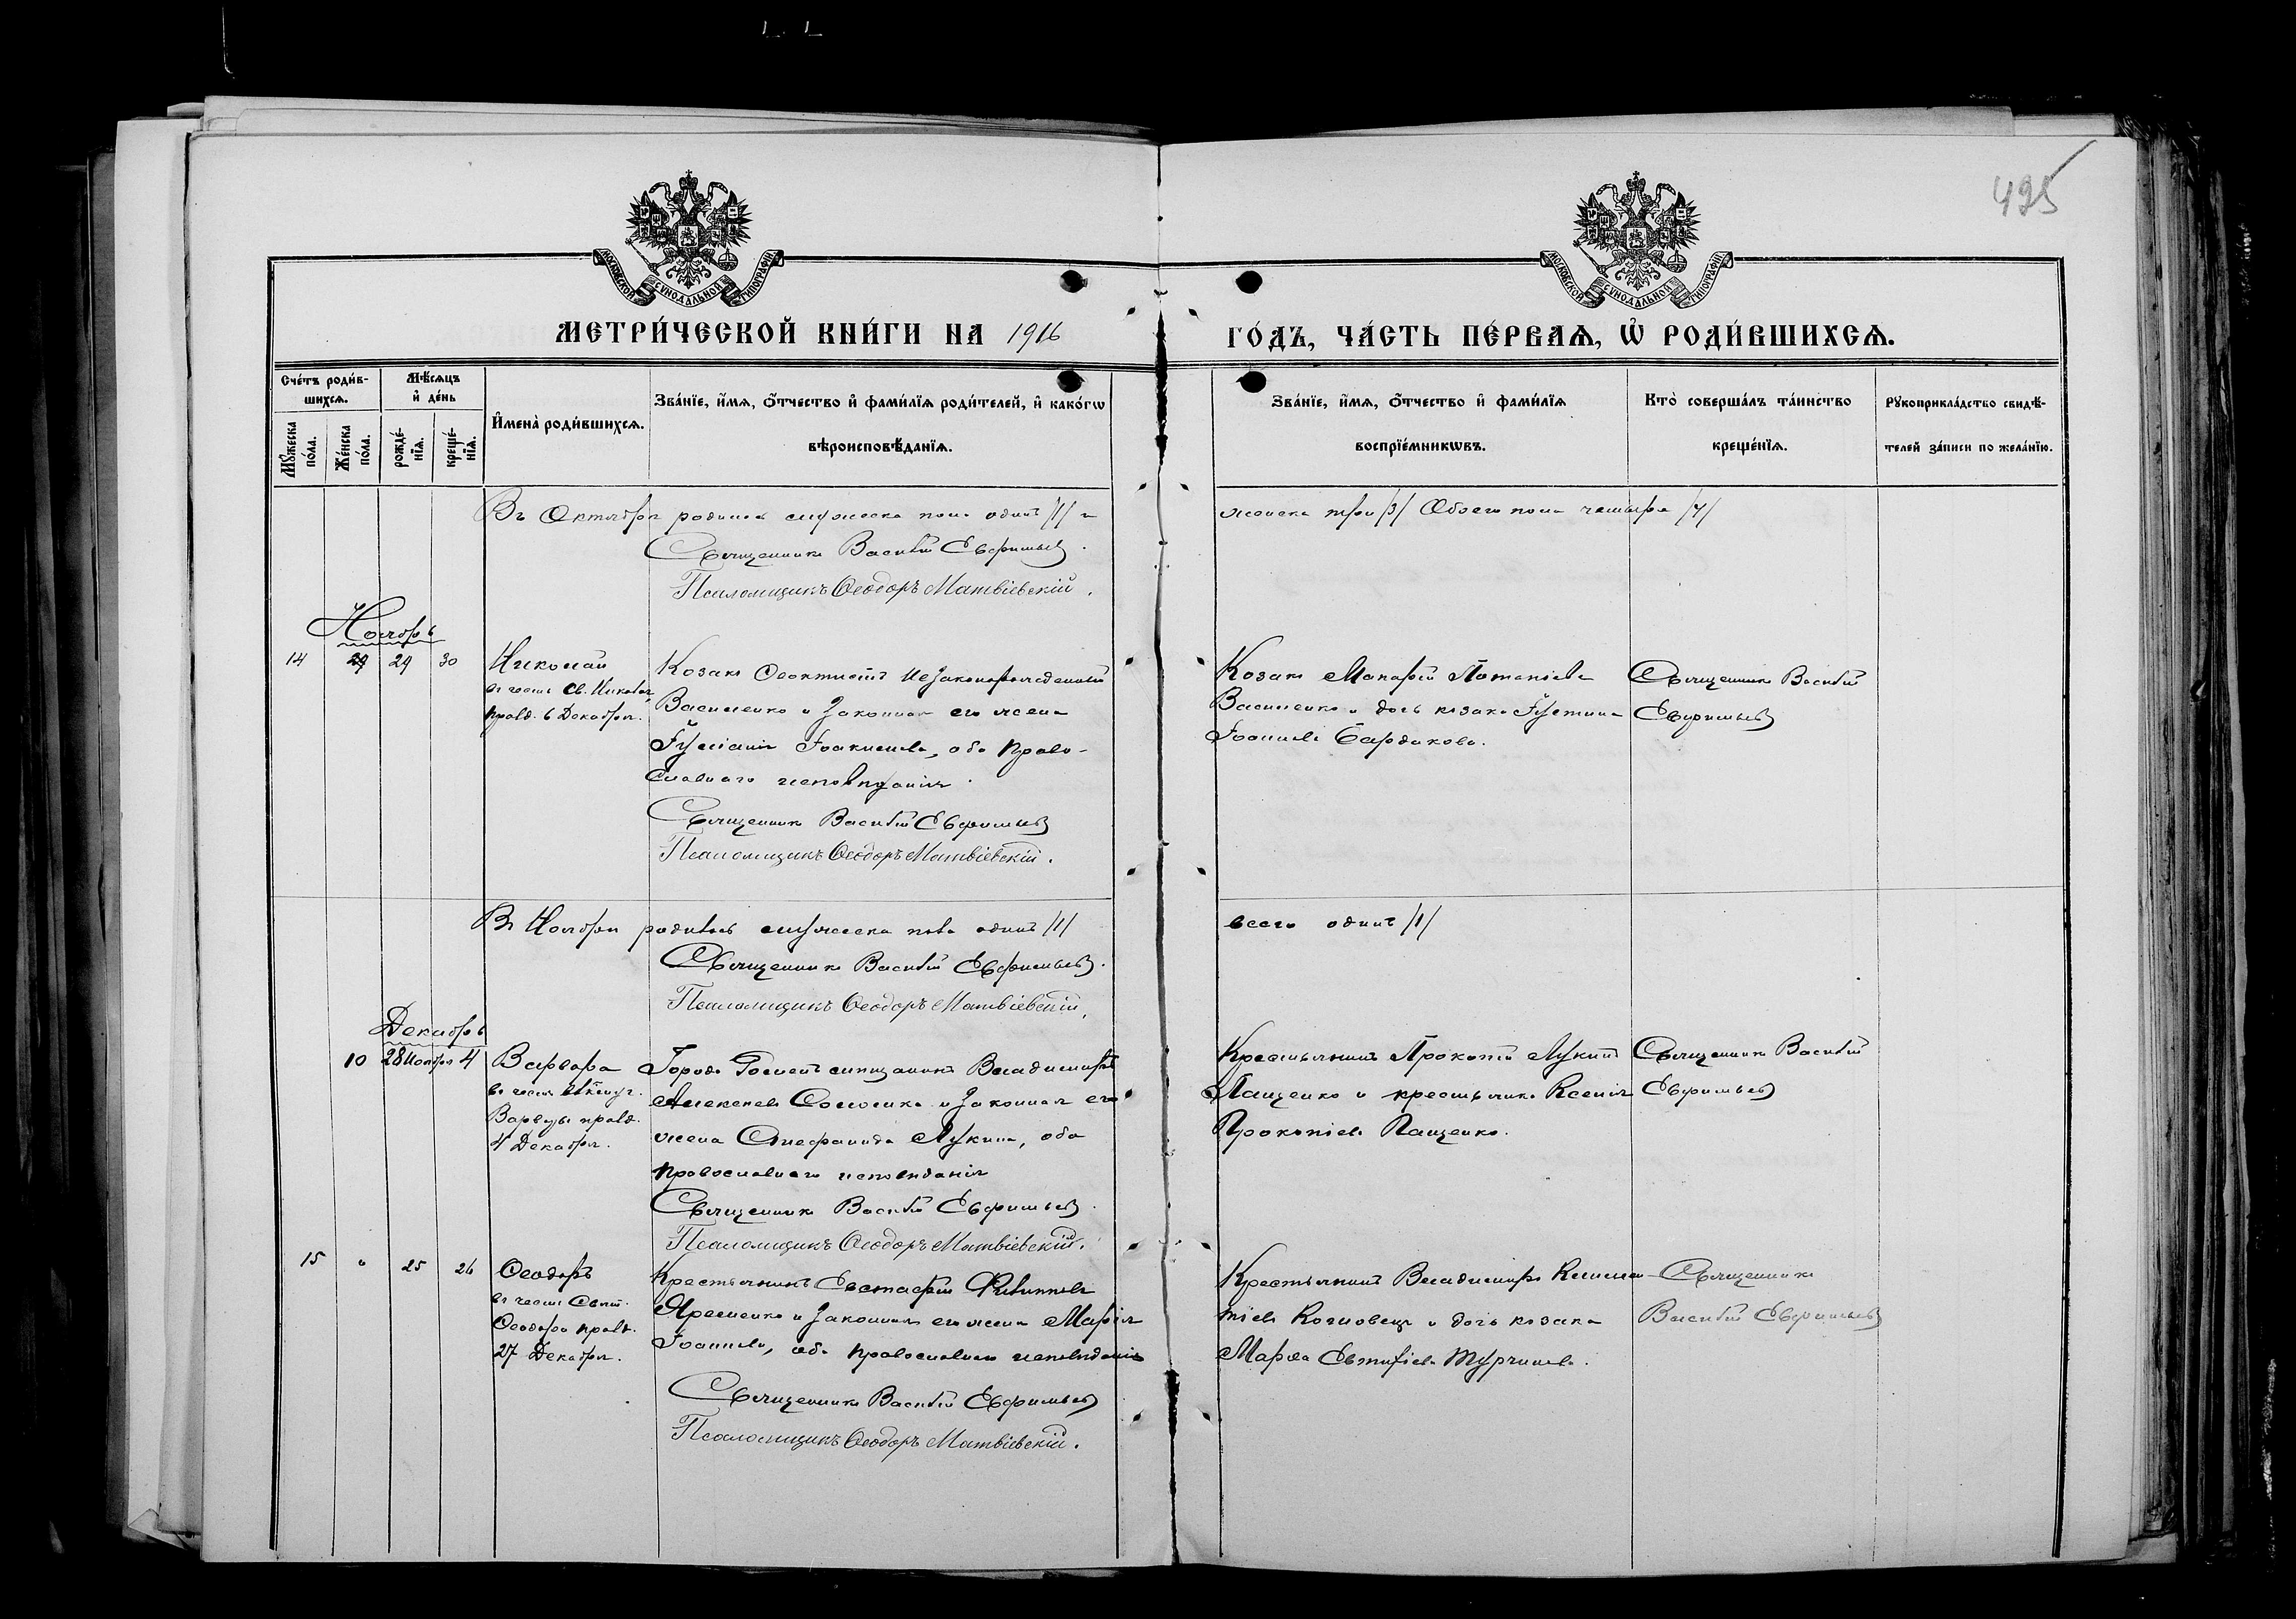 495
МОСКОВСКОЙ СѴНОДАЛЬНОЙ ТИПОГРАФІИ
МОСКОВСКОЙ СѴНОДАЛЬНОЙ ТИПОГРАФІИ
МЕТРИ́ЧЕСКОЙ КНИ́ГИ НА 1916
ГО́ДЪ, ЧА́СТЬ ПЕ́РВАѦ, Ѡ҆ РОДИ́ВШИХСѦ.
Сче́тъ роди́вшихсѧ.
Мꙋ́жеска по́ла.
Же́нска по́ла.
Мѣ́сѧцъ и҆ де́нь
рожде́нїѧ.
креще́нїѧ.
И҆мена̀ роди́вшихсѧ.
Зва́нїе, и҆́мѧ, ѻ҆́тчество и҆ фами́лїѧ роди́телей, и҆ како́гѡ
вѣроисповѣ́данїѧ.
Зва́нїе, и҆́мѧ, ѻ҆́тчество и҆ фами́лїѧ
воспрїе́мникѡвъ.
Кто̀ соверша́лъ та́инство
креще́нїѧ.
Рꙋкоприкла́дство свидѣ́-
телей за́писи по жела́нїю.
Въ Октябрѣ родилось мужеска пола одинъ /1/ и
женска три /3/ Обоего пола четыре /4/
Священникъ Василій Евфимьевъ.
Псаломщикъ Ѳеодоръ Матвіевскій.
Ноябрь
14 29 30
Николай
въ честь св. Николая
празд. 6 Декабря.
Козакъ Ѳеоктистъ Незаконорожденный
Василенко и законная его жена
Іуліанія Іоакимова, оба Право-
славнаго исповѣданія.
Священникъ Василій Евфимьевъ
Псаломщикъ Ѳеодоръ Матвіевскій.
Козакъ Макарій Потапіевъ
Василенко и дочь козака Іустина
Іоаннова Бардакова.
Священникъ Василій
Евфимьевъ
Въ Ноябрѣ родилось мужеска пола одинъ /1/
всего одинъ /1/
Священникъ Василій Евфимьевъ.
Псаломщикъ Ѳеодоръ Матвіевскій.
Декабрь
10 28 Ноября 4
Варвара
въ честь
Варвары празд.
4 Декабря.
Города мѣщанинъ Владиміръ
Алексѣевъ и законная его
жена Стефанида Лукина, оба
православнаго исповѣданія
Священникъ Василій Евфимьевъ.
Псаломщикъ Ѳеодоръ Матвіевскій.
Крестьянинъ Прокопій Лукинъ
Пащенко и крестьянка Ксенія
Прокопіева Пащенко.
Священникъ Василій
Евфимьевъ
15 " 25 26
Ѳеодоръ
въ честь Свят.
Ѳеодора празд.
27 Декабря.
Крестьянинъ Евстафій Филипповъ
Яременко и законная его жена Марія
Іоаннова, оба православнаго исповѣданія
Священникъ Василій Евфимьевъ
Псаломщикъ Ѳеодоръ Матвіевскій.
Крестьянинъ Владиміръ Климен-
тіевъ и дочь козака
Марѳа Турчинова.
Священникъ
Василій Евфимьевъ